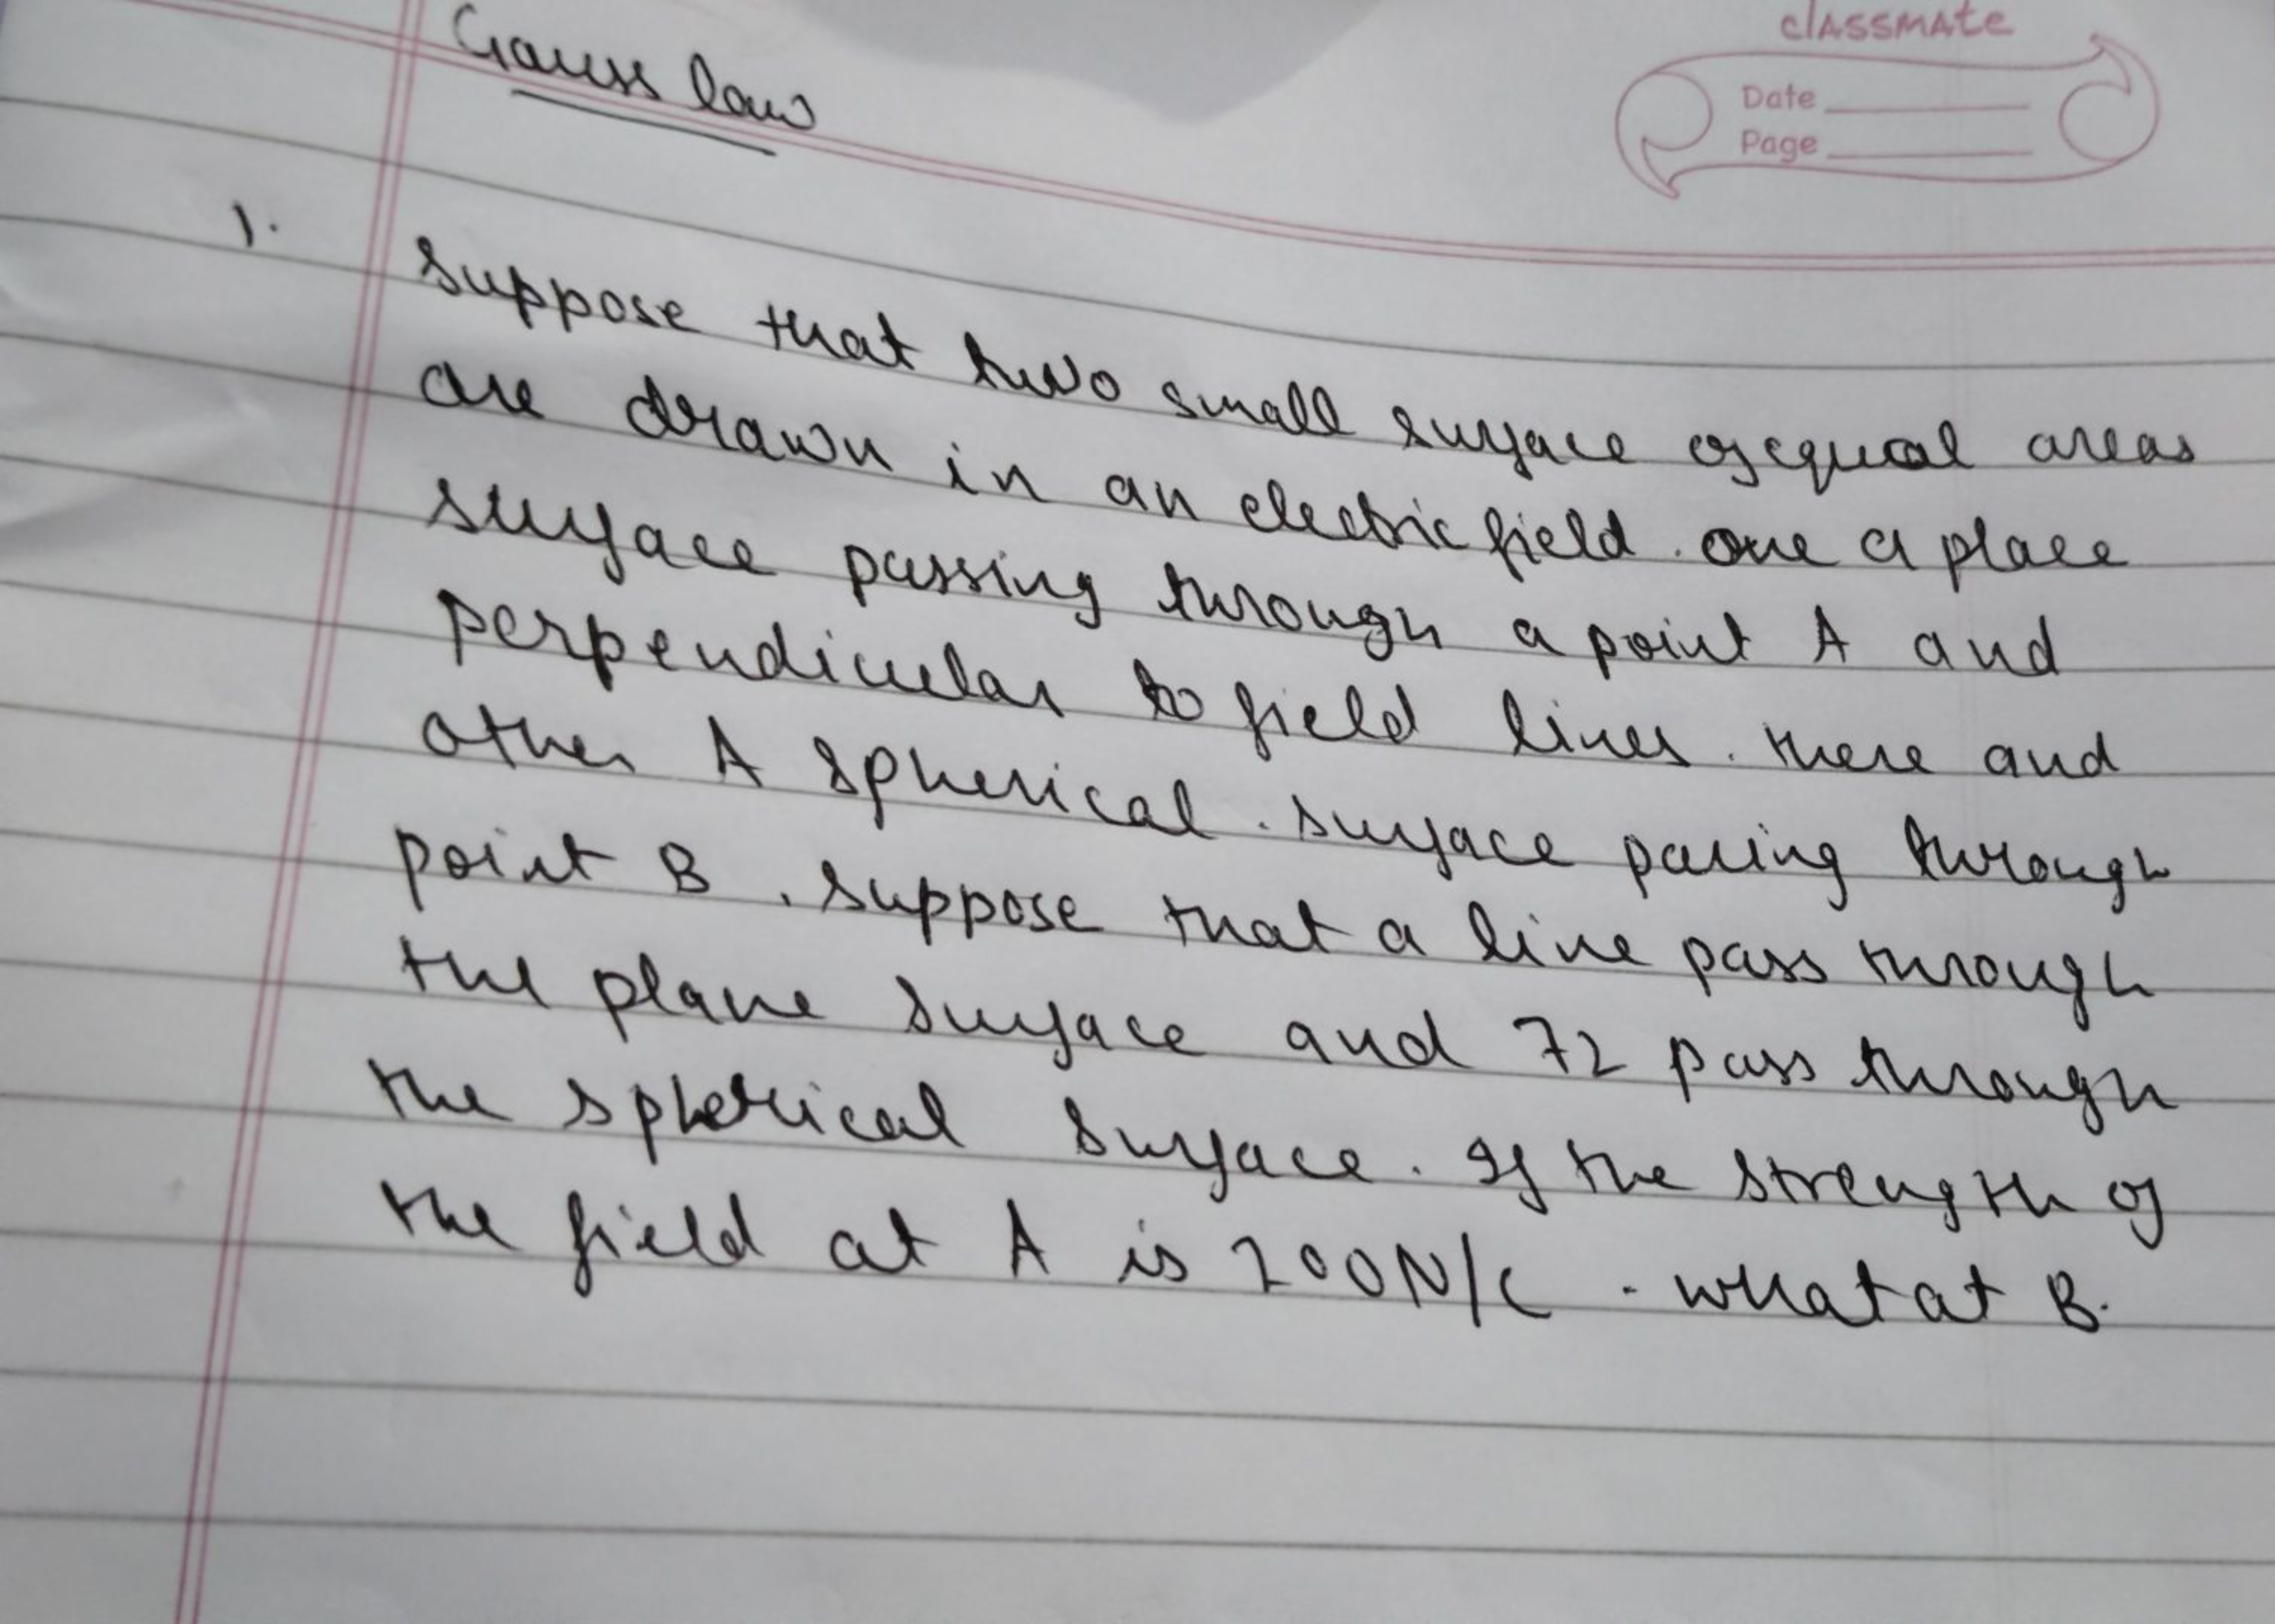 Gauss law
classmate
Date
Page
1.
Suppose that two small surface of equal areas
are drawn in an electric field. one a place
surface passing through a point A and
perpendicular to field lines. there and
other A spherical. surface passing through
point B. suppose that a line pass through
the plane surface and 72 pass through
the spherical surface. If the strength of
the field at A is 200N/C. what at B.